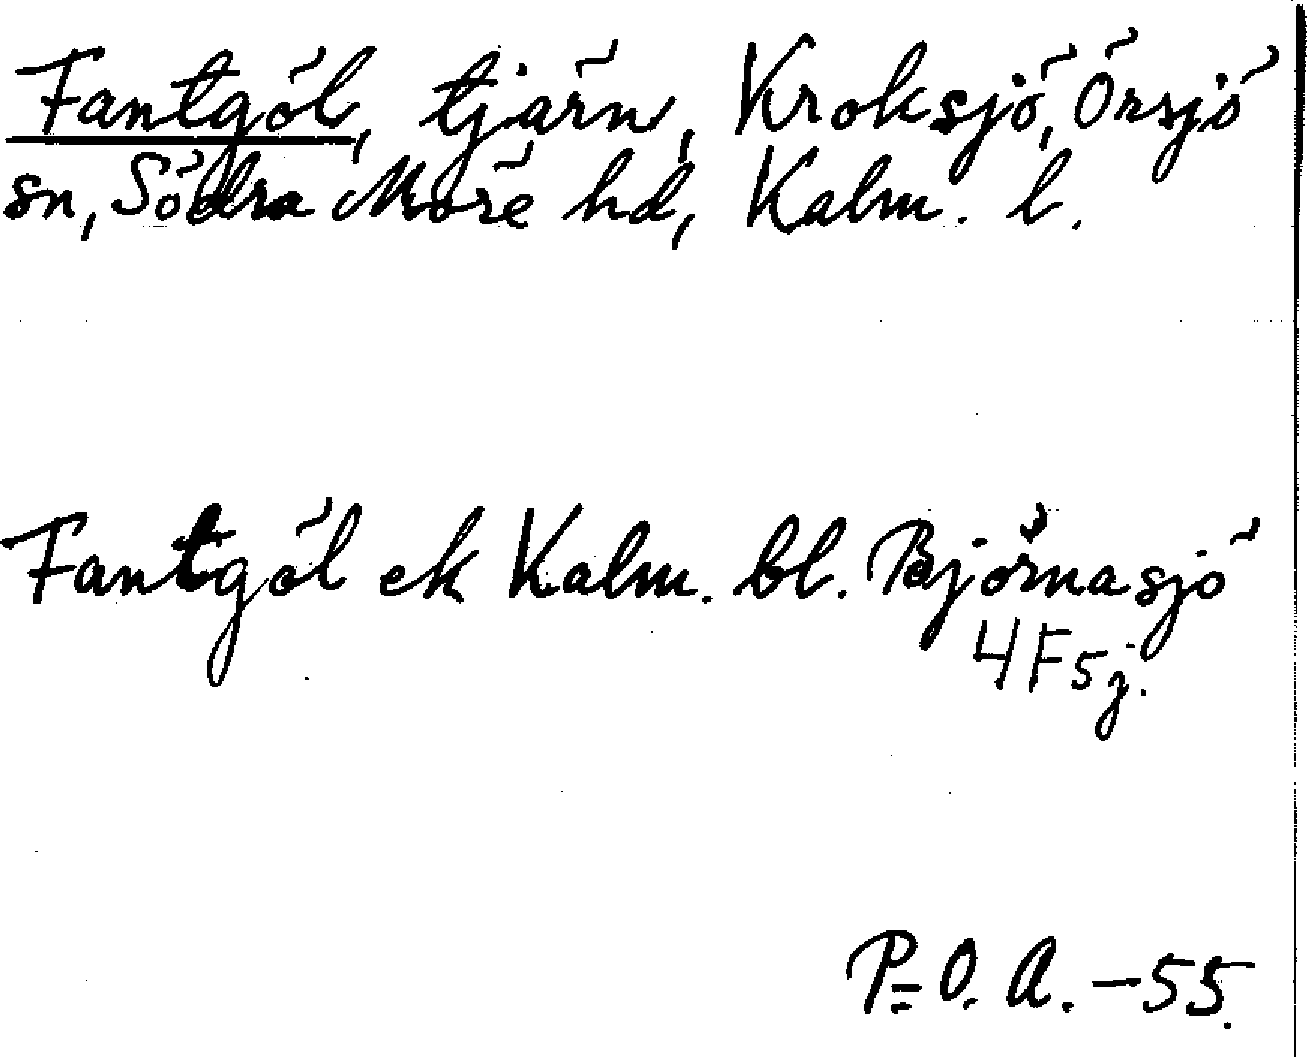 Fantgöl, tjärn, Kroksjö, Örsjö
sn, Södra Möre hd, Kalm. l.
Fantgöl ek Kalm. bl. Björnasjö
4F5j.
P=O. A. -55.